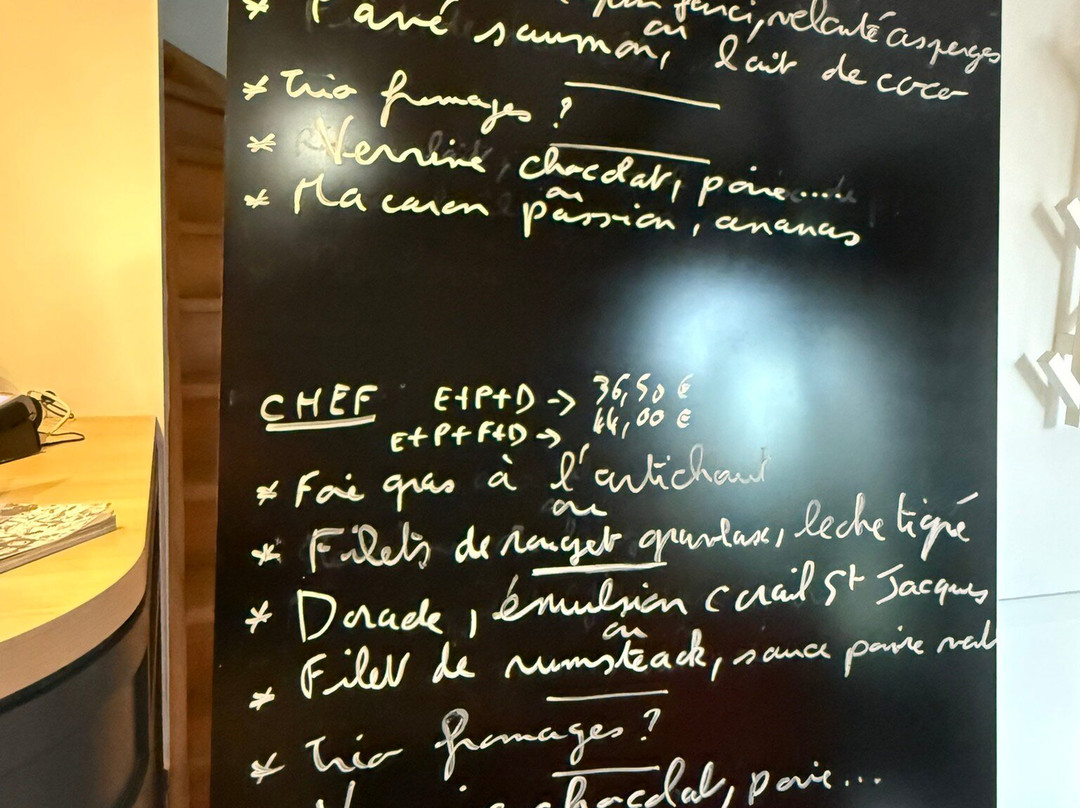 farci, velouté asperges
ou
* Pavé saumon, lait de coco
* Trio fromages ?
* Verrine chocolat, poire.....
ou
* Macaron passion, ananas
CHEF E+P+D -> 36,50 €
E+P+F+D -> 44,00 €
* Foie gras à l'artichaut
ou
* Filets de rouget gravlax, leche tigré
* Dorade, émulsion corail St Jacques
ou
* Filet de rumsteack, sauce poivre
* Trio fromages ?
chocolat, poire...